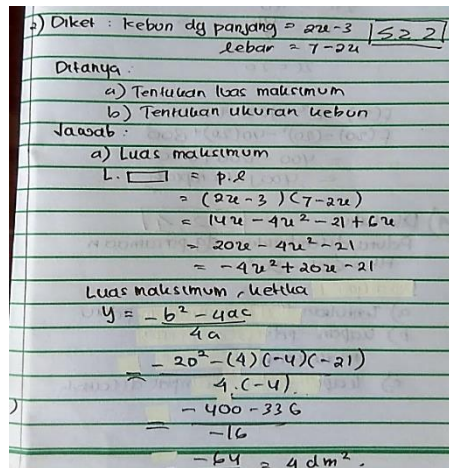 2) Diket : kebun dg panjang = 2x-3 S.2.2
lebar = 7-2x
Ditanya :
a) Tentukan luas maksimum
b) Tentukan ukuran kebun
Jawab :
a) Luas maksimum
L. ▭ = p.l
= (2x-3)(7-2x)
= 14x - 4x² - 21 + 6x
= 20x - 4x² - 21
= -4x² + 20x - 21
Luas maksimum, ketika
y = - b² - 4ac / 4a
= - 20² - (4)(-4)(-21) / 4.(-4)
) = - 400 - 336 / -16
- 64 = 4 dm².